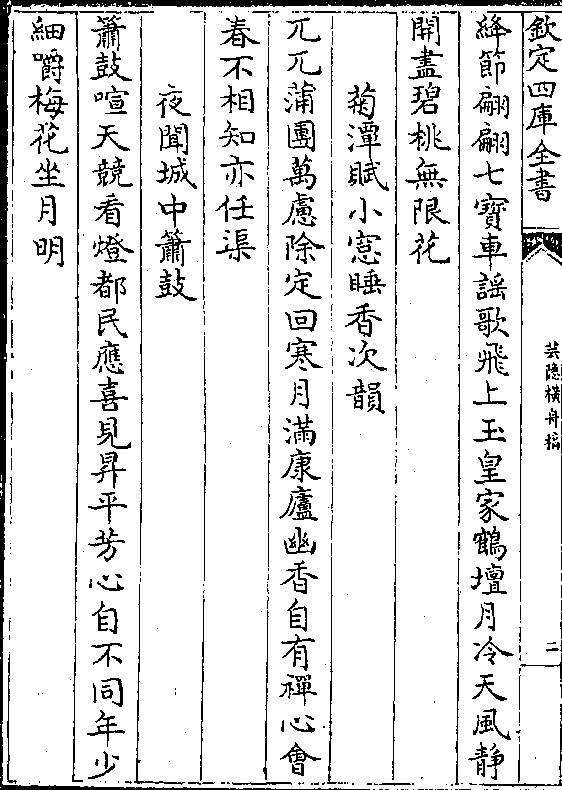 欽定四庫全書
芸隠横舟稿
二
絳節翩翩七寳車謡歌飛上玉皇家鶴壇月冷天風靜
開盡碧桃無限花
菊潭賦小窓睡香次韻
兀兀蒲團萬慮除定回寒月滿康廬幽香自有禪心會
春不相知亦任渠
夜聞城中簫鼓
簫鼓喧天競看燈都民應喜見昇平芳心自不同年少
細嚼梅花坐月明